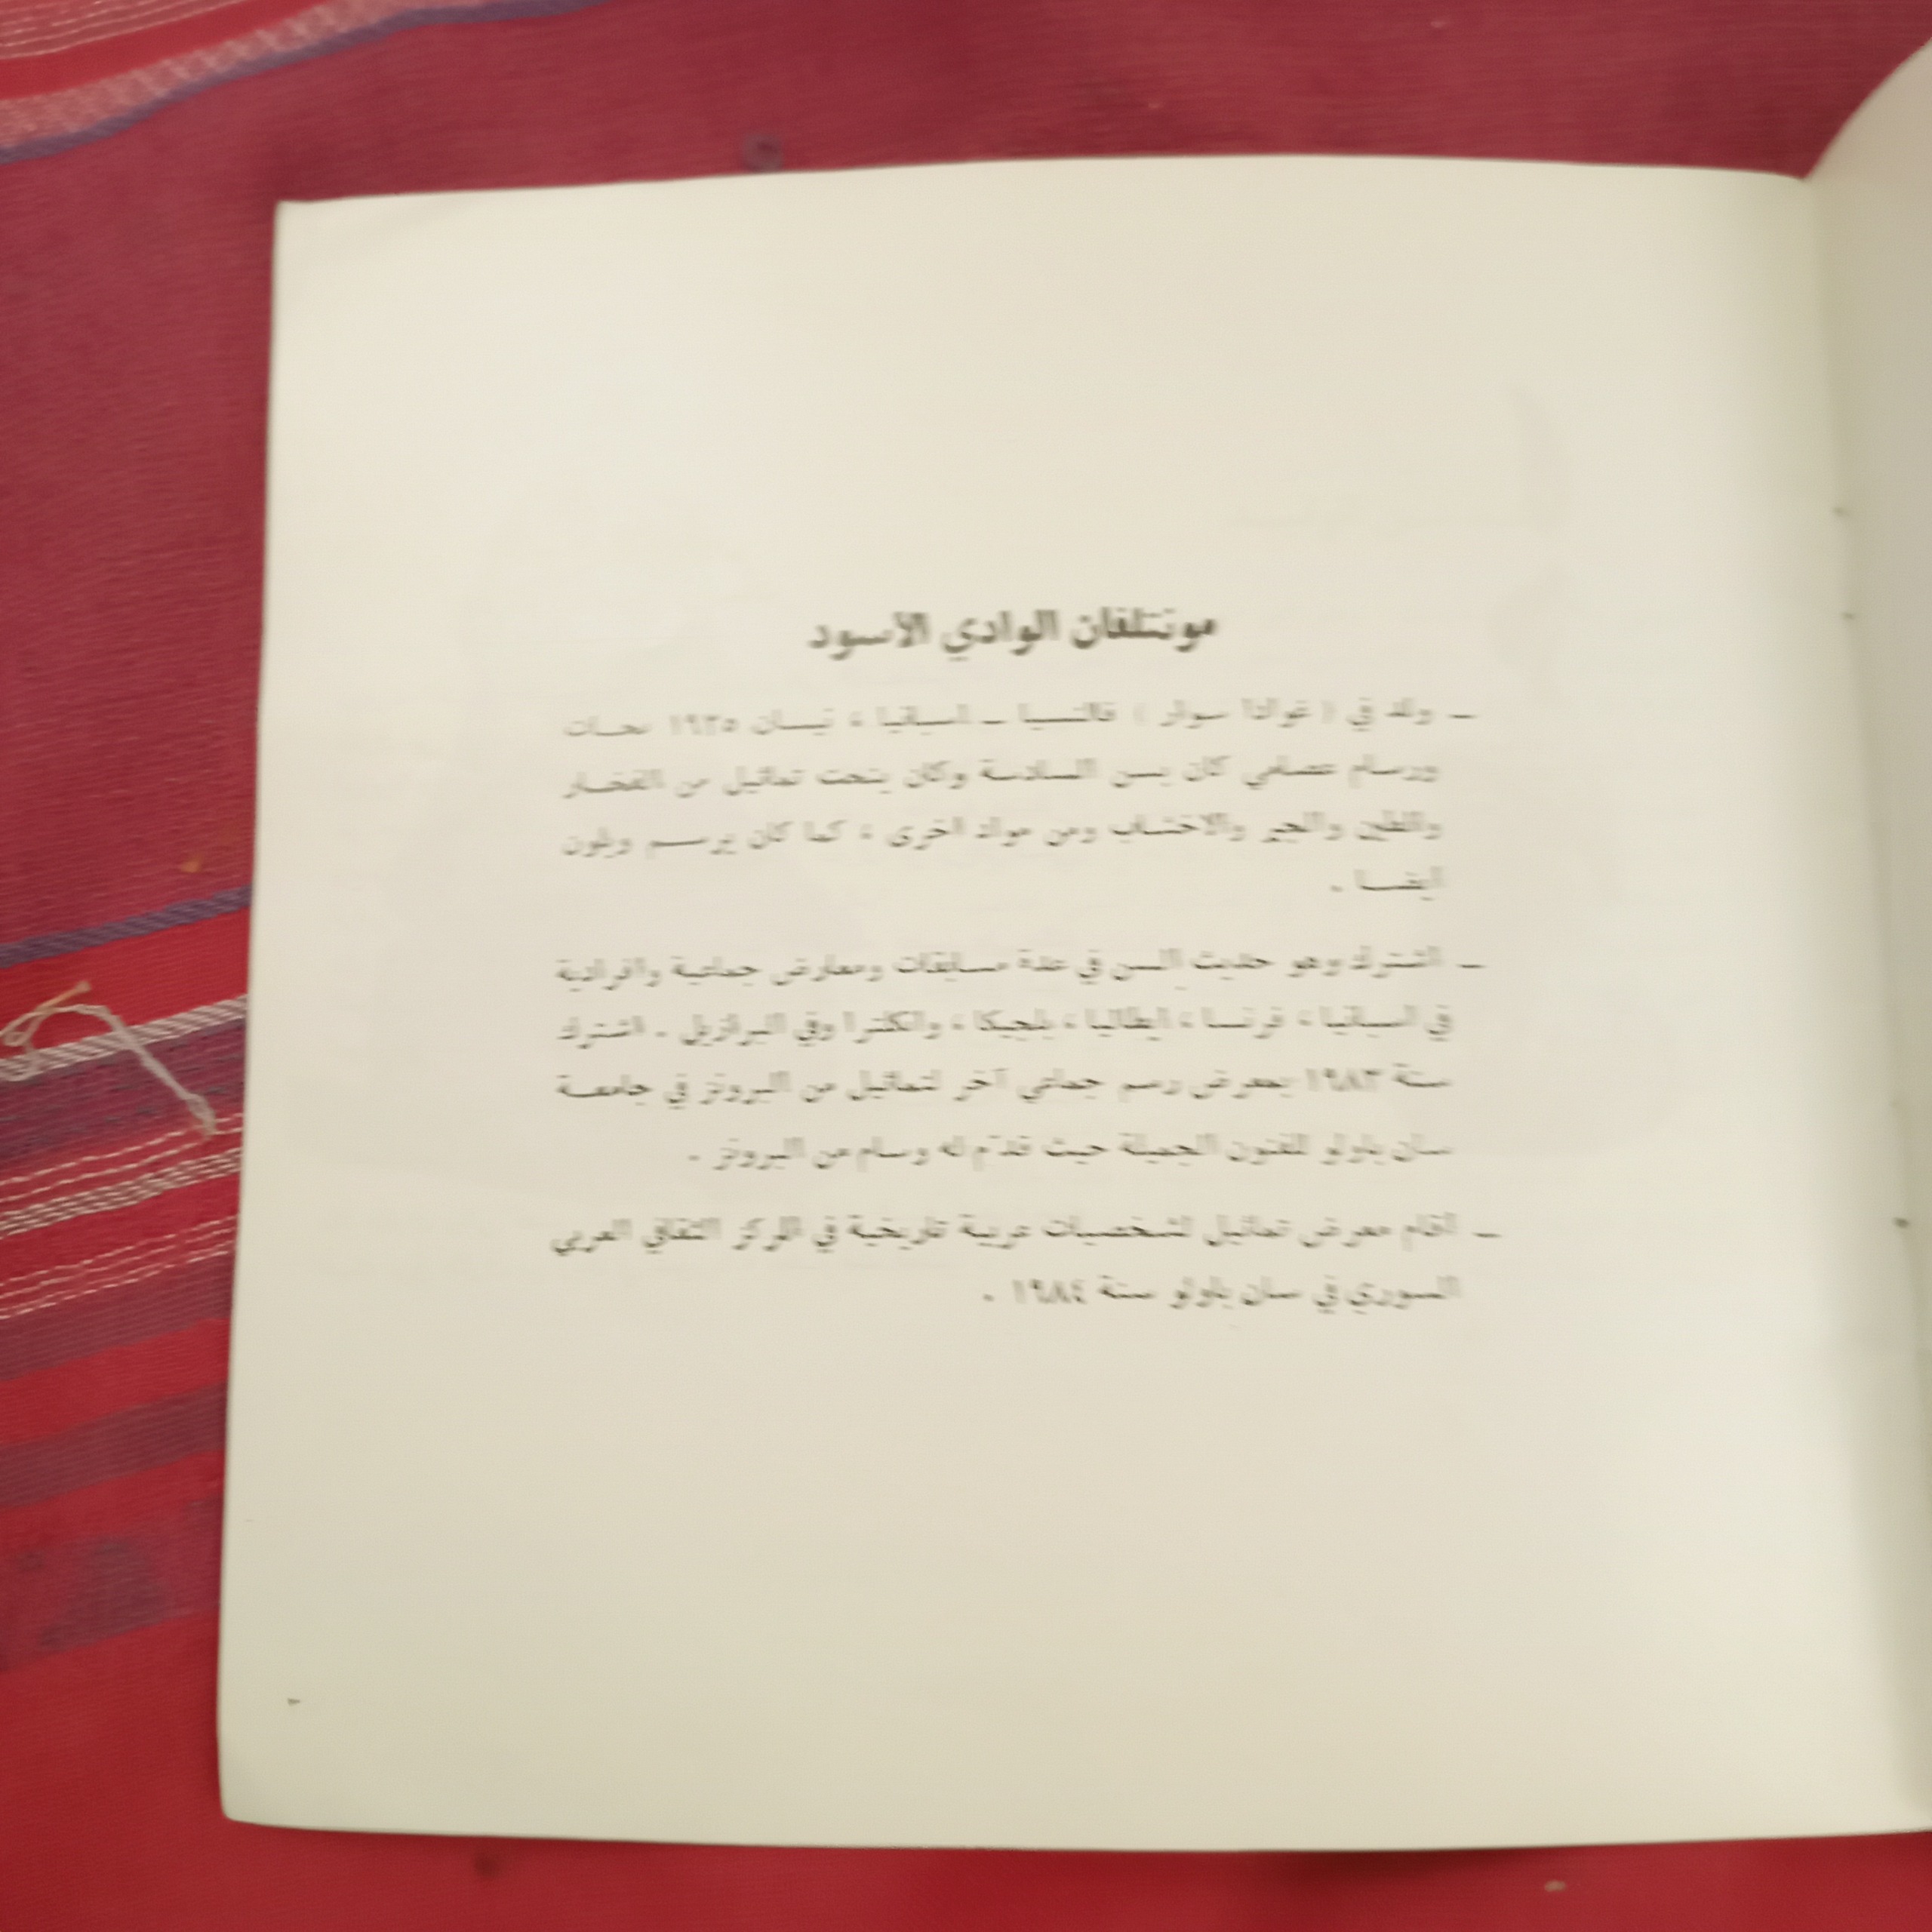 مونتلفان الوادي الأسود
ــ ولد في ( غوادا سوار ) فالنسيا ــ اسبانيا ، نيسان ١٩٢٥ نحات
ورسام عصامي كان بسن السادسة وكان ينحت تماثيل من الفخار
والطين والجير والاخشاب ومن مواد اخرى ، كما كان يرسم ويلون
ايضا .
ــ اشترك وهو حديث السن في عدة مسابقات ومعارض جماعية وافرادية
في اسبانيا ، فرنسا ، ايطاليا ، بلجيكا ، وانكلترا وفي البرازيل . اشترك
سنة ١٩٨٣ بمعرض رسم جماعي آخر لتماثيل من البرونز في جامعة
سان باولو للفنون الجميلة حيث قدّم له وسام من البرونز .
ــ اقام معرض تماثيل لشخصيات عربية تاريخية في المركز الثقافي العربي
السوري في سان باولو سنة ١٩٨٤ .